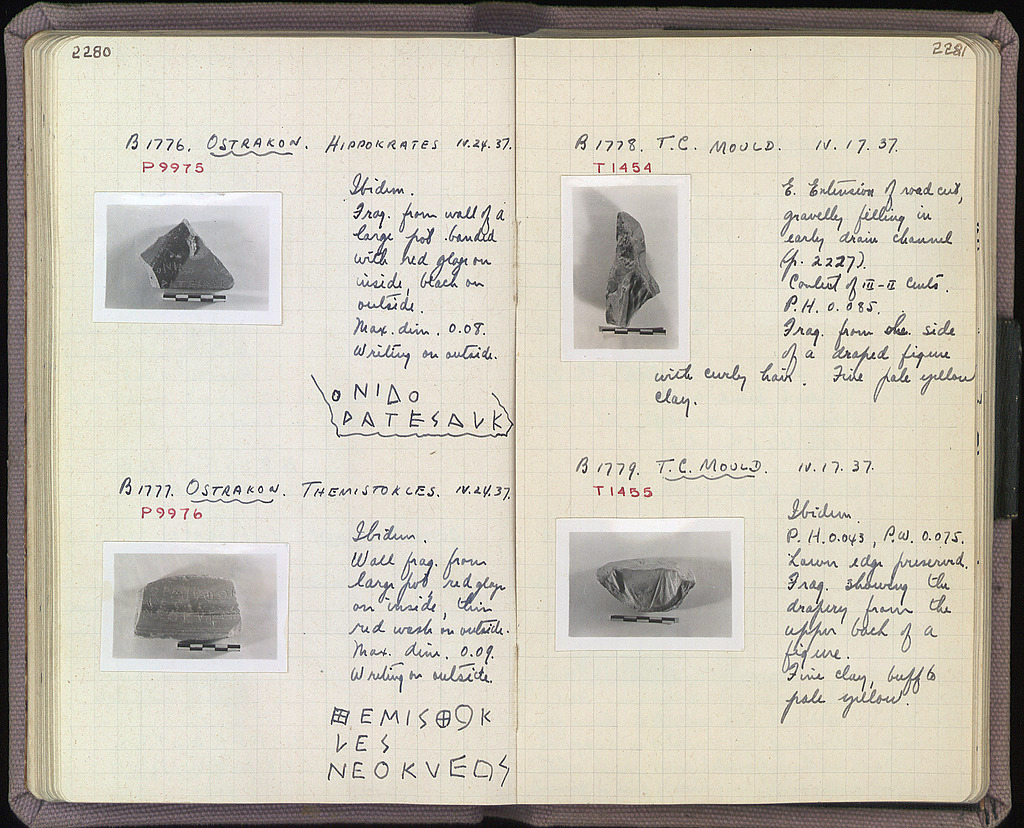 2280
B 1776. OSTRAKON. HIPPOKRATES IV.24.37.
P9975
Ibidem.
Frag. from wall of a
large pot banded
with red glaze on
inside, black on
outside.
Max. dim. 0.08.
Writing on outside.
B 1777. OSTRAKON. THEMISTOKLES. IV.24.37.
P9976
Ibidem.
Wall frag. from
large pot, red glaze
on inside, thin
red wash on outside.
Max. dim. 0.09.
Writing on outside.
2281
B 1778. T.C. MOULD. IV.17.37.
T1454
E. Extension of road cut,
gravelly filling in
early drain channel
(p. 2227).
Context of III-II cents.
P.H. 0.085.
Frag. from one side
of a draped figure
with curly hair. Fine pale yellow
clay.
B 1779. T.C. MOULD. IV.17.37.
T1455
Ibidem.
P.H. 0.043, P.W. 0.075.
Lower edge preserved.
Frag. showing the
drapery from the
upper back of a
figure.
Fine clay, buff to
pale yellow.